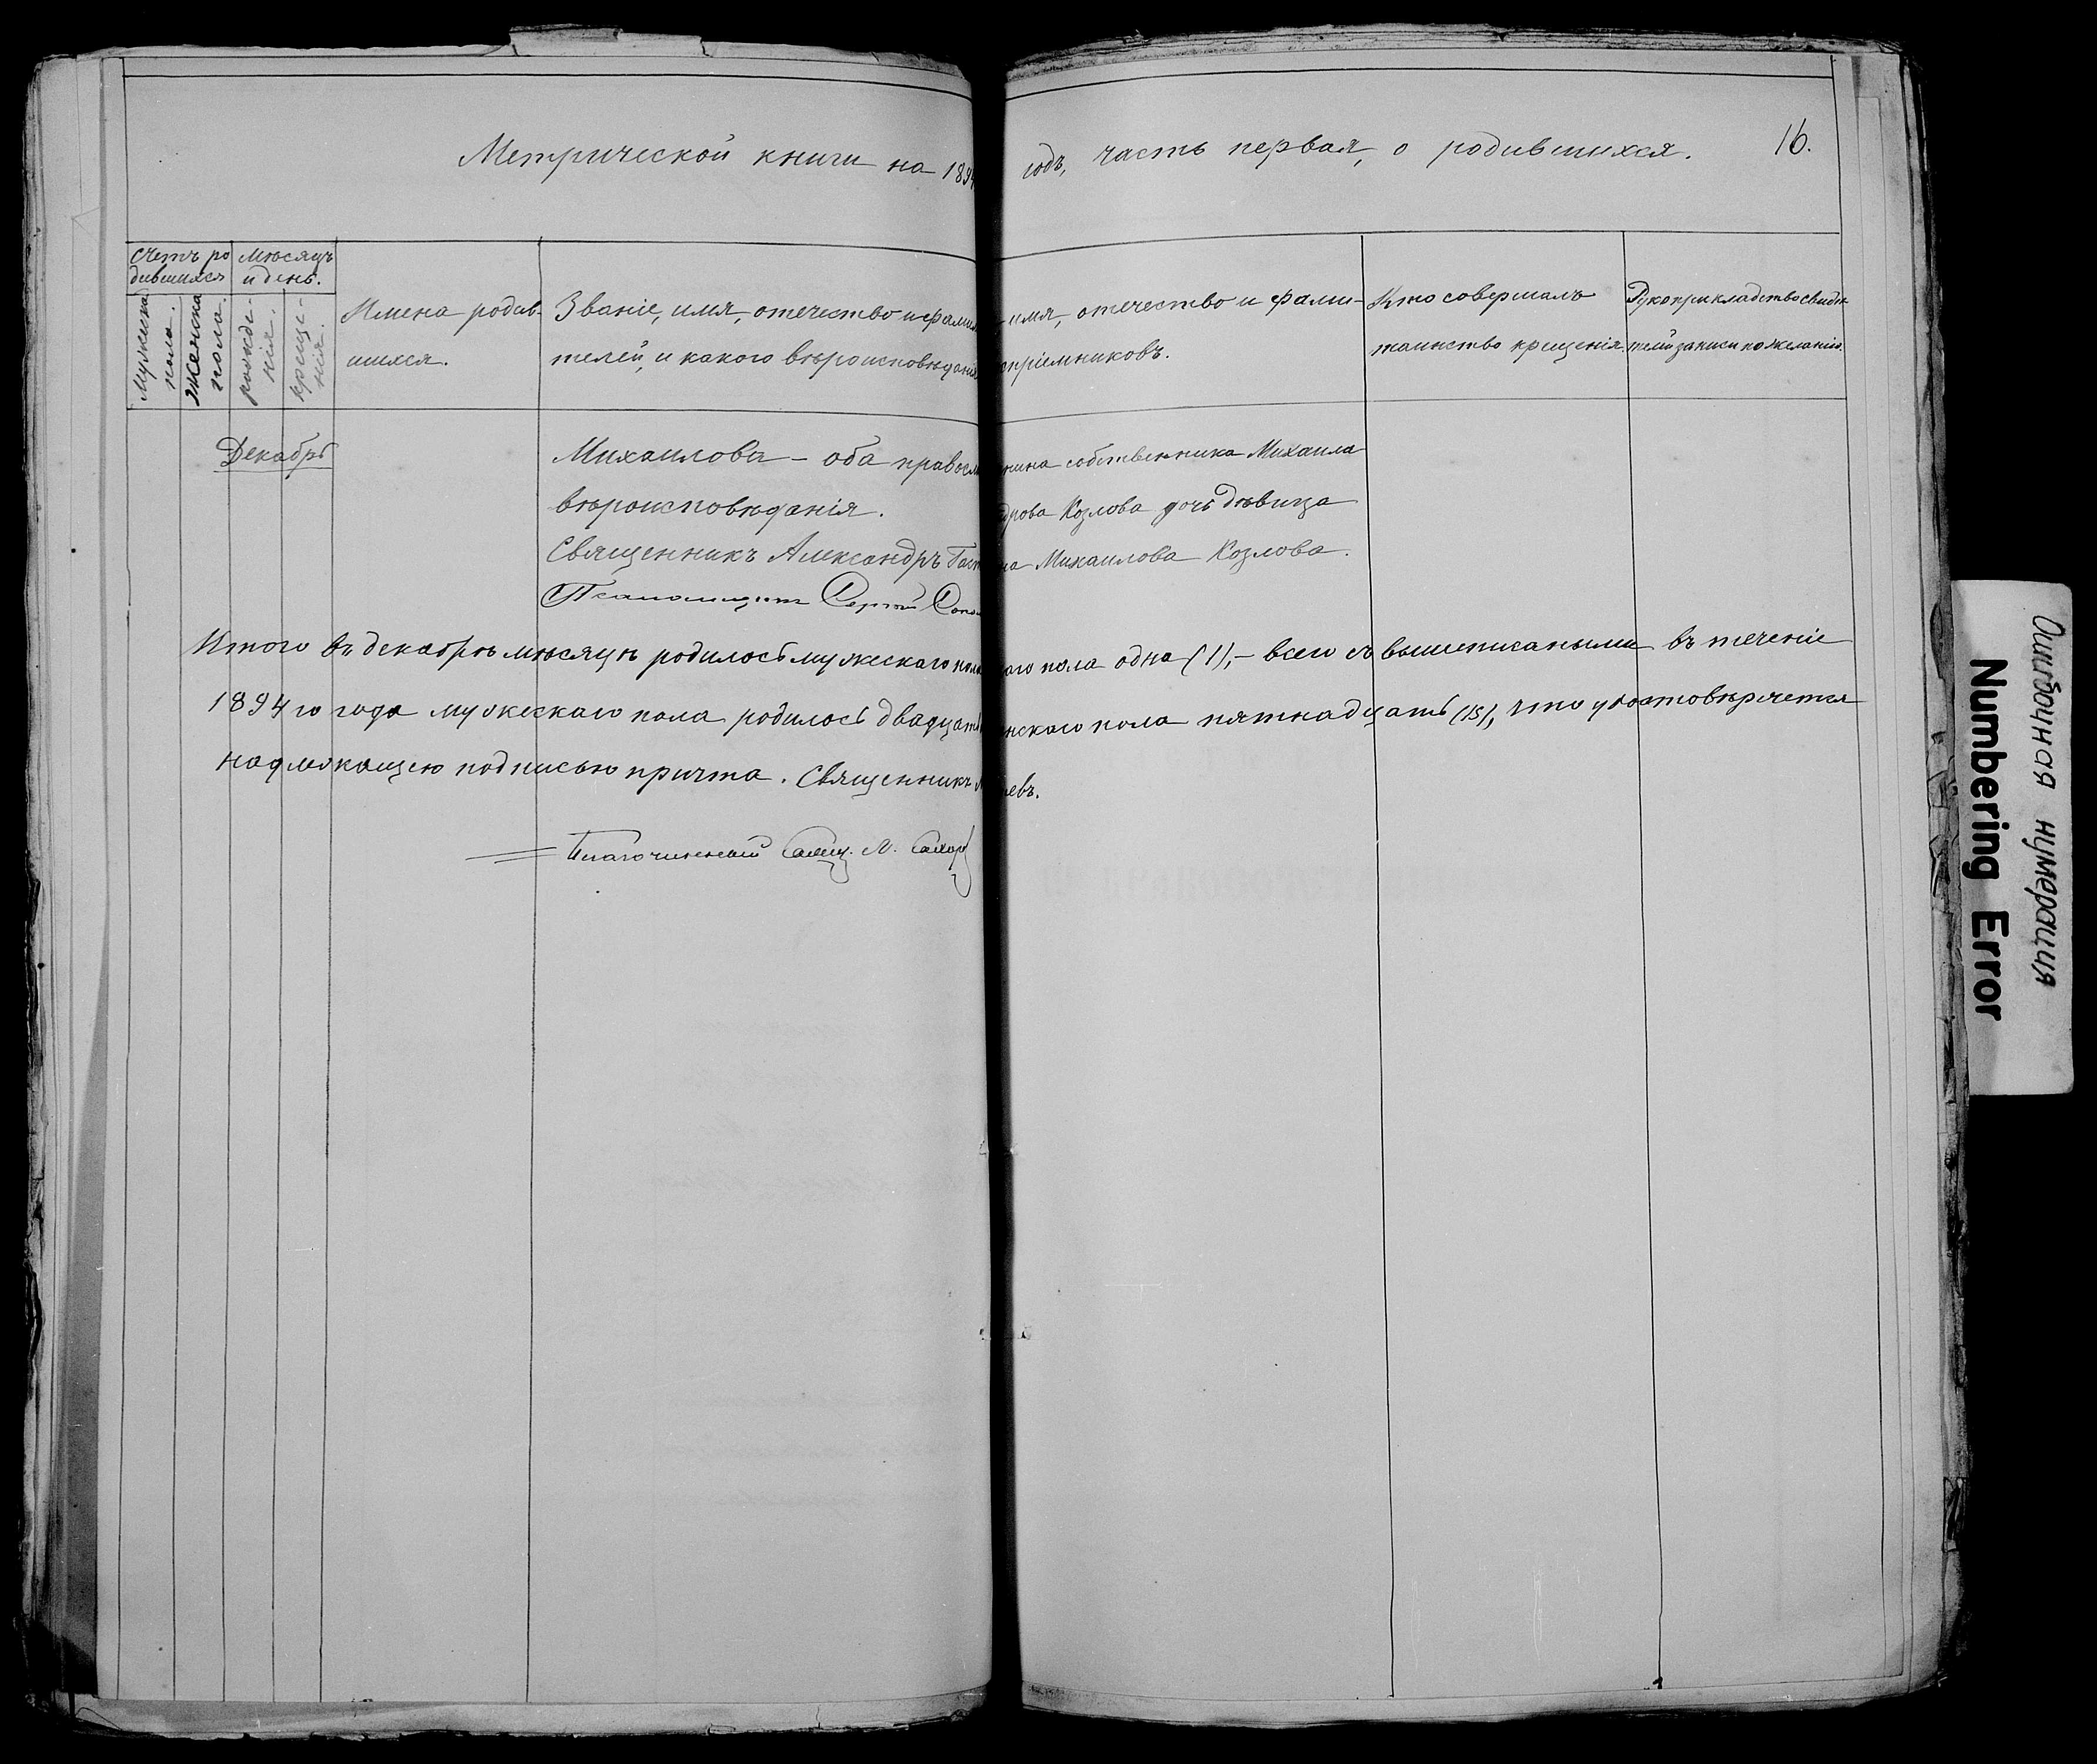 Метрической книги на 1894 годъ, часть первая, о родившихся. 16.
Счетъ ро
дившихся
Мужеска
пола.
Женска
пола.
Мѣсяцъ
и день.
рожде-
нія.
креще-
нія.
Имена родив-
шихся.
Званіе, имя, отечество и фамил
телей, и какого вѣроисповѣданія
имя, отечество и фами-
пріемниковъ.
Кто совершалъ
таинство крещенія.
Рукоприкладство свидѣ
телей записи по желанію.
Декабрь
Михаилова - оба правосл
вѣроисповѣданія.
Священникъ Александръ
Псаломщикъ Сергій
нина собственника Михаила
дрова Козлова дочь дѣвица
на Михаилова Козлова.
Итого въ декабрѣ мѣсяцѣ родилось мужескаго пола
аго пола одна (1), - всего съ вышеписаными въ теченіе
1894 го года мужескаго пола родилось двадцать
нскаго пола пятнадцать (15), что удостовѣряется
надлежащею подписью причта. Священникъ
евъ.
Благочинный Свящ. М.
Ошибочная нумерация
Numbering Error